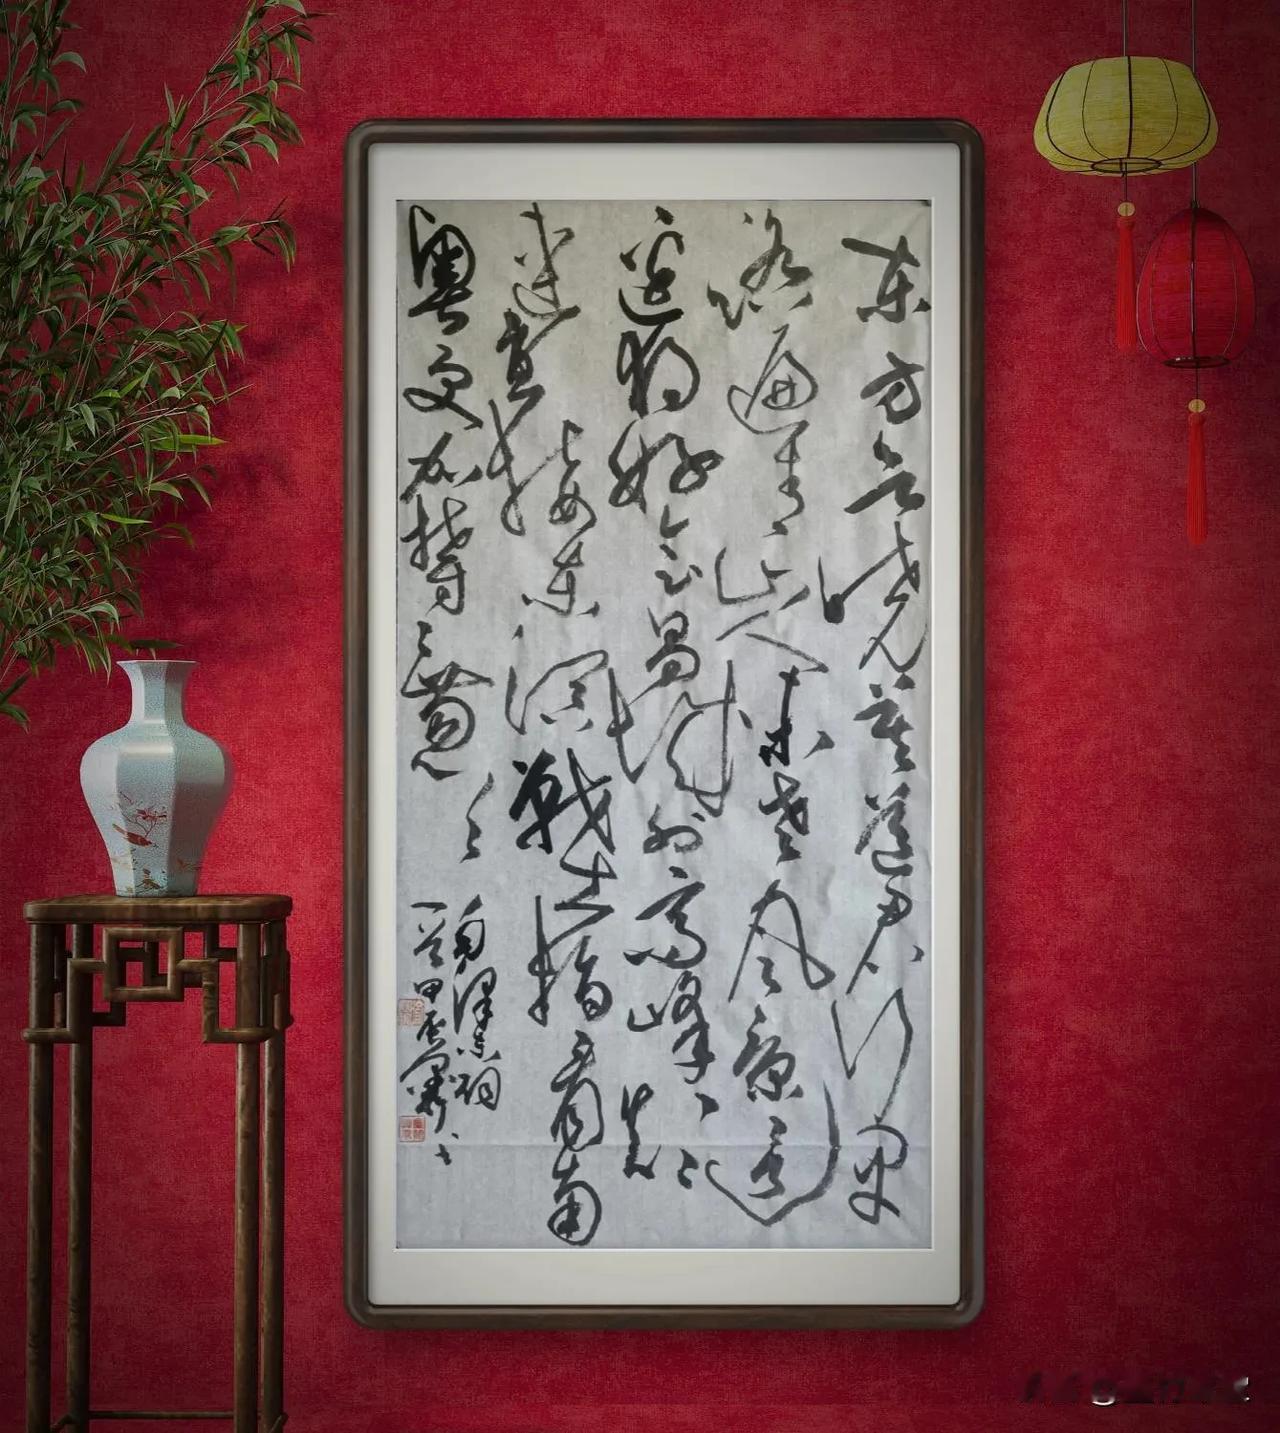 东方欲晓莫道君行早
踏遍青山人未老风景这
边独好会昌城外高峰颠
连直接东溟战士指看南
粤更加郁〻葱〻
毛泽东词
一首甲辰